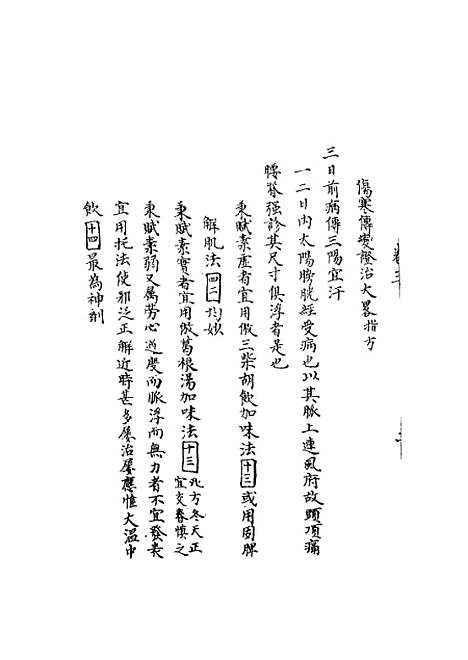 傷寒傳變證治大畧指方
三日前病傳三陽宜汗
一二日內太陽膀胱經受病也以其脉上連風府故頭項痛
腰脊强診其尺寸俱浮者是也
秉賦素虛者宜用倣三柴胡飲加味法十二或用固脾
解肌法四二均妙
秉賦素實者宜用倣葛根湯加味法十三北方冬天正
宜交春慎之
秉賦素弱又属勞心過度而脉浮而無力者不宜發表
宜用托法使邪從正解近時甚多屡治屡應惟大溫中
飲十四最為神劑